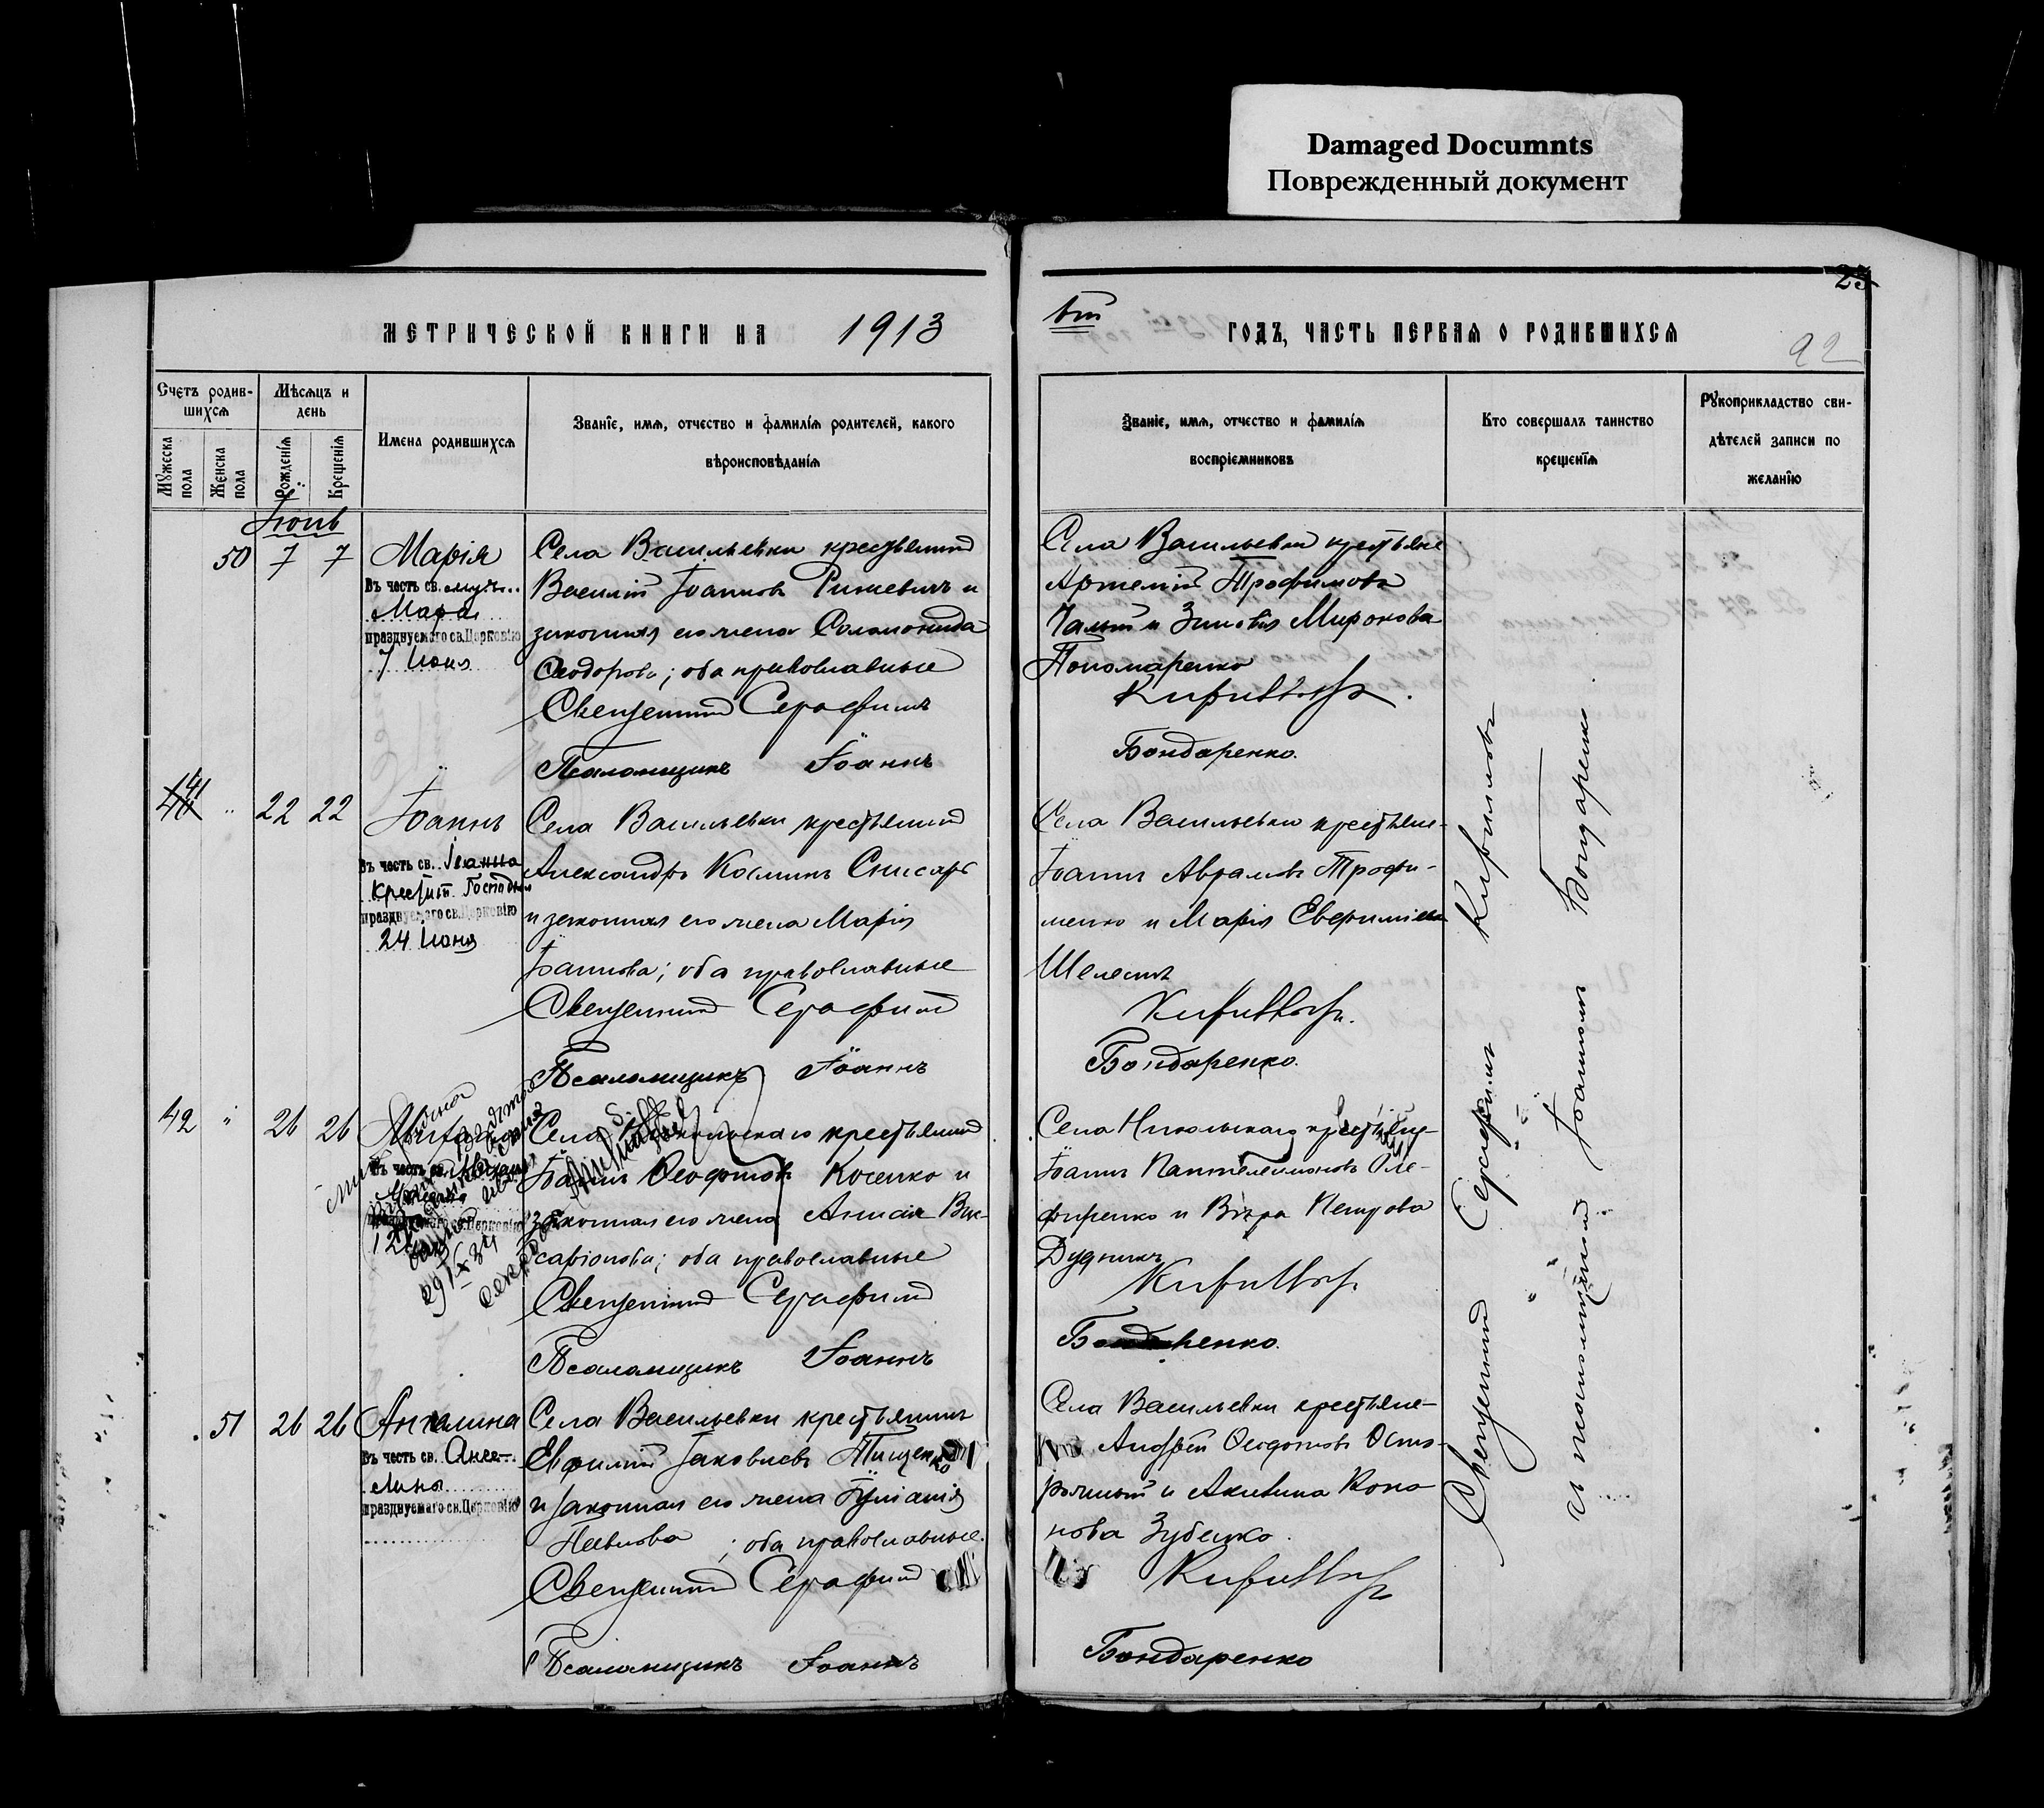 Damaged Documnts
Поврежденный документ
23
МЕТРИЧЕСКОЙ КНИГИ НА 1913
ый ГОДЪ, ЧАСТЬ ПЕРВАЯ О РОДИВШИХСЯ
92
Счетъ родив-
шихся
Мужеска пола
Женска пола
Мѣсяцъ и
день
Рожденія
Крещенія
Имена родившихся
Званіе, имя, отчество и фамилія родителей, какого
вѣроисповѣданія
Званіе, имя, отчество и фамилія
воспріемниковъ
Кто совершалъ таинство
крещенія
Рукоприкладство сви-
дѣтелей записи по
желанію
Іюнь
50 7 7 Марія
Въ честь св. муч.
Маріи
празднуемаго св. Церковію
7 Іюня
Села Васильевки крестьянинъ
Василій Іоанновъ и
законная его жена Соломонида
Ѳеодорова; оба православные
Священникъ Серафимъ
Псаломщикъ Іоаннъ
Села Васильевки крестьяне
Артемій Трофимовъ
Чалый и Зиновія Миронова
Пономаренко
Кириловъ.
Бондаренко.
41 " 22 22 Іоаннъ
Въ честь св. Іоанна
Крестит. Господня
празднуемаго св. Церковію
24 Іюня
Села Васильевки крестьянинъ
Александръ Косминъ Снисарь
и законная его жена Марія
Іоаннова; оба православные
Священникъ Серафимъ
Псаломщикъ Іоаннъ
Села Васильевки крестьяне
Іоаннъ Аврамовъ Трофи-
менко и Марія Евфиміева
Шелестъ
Кириловъ.
Бондаренко.
42 " 26 26
Въ честь св.
празднуемаго св. Церковію
29/IX 34
Села Никольскаго крестьянинъ
Іоаннъ Ѳеодотовъ Косенко и
законная его жена Анна Вис-
саріонова; оба православные
Священникъ Серафимъ
Псаломщикъ Іоаннъ
Села Никольскаго крестьяне
Іоаннъ Пантелеимоновъ Оле-
фиренко и Вѣра Петрова
Дудникъ
Кириловъ
Бондаренко.
51 26 26 Ангелина
Въ честь св. Анге-
лины
празднуемаго св. Церковію
Села Васильевки крестьянинъ
Евфимій Іаковлевъ Тищенко
и законная его жена Іуліанія
Павлова; оба православные.
Священникъ Серафимъ
Псаломщикъ Іоаннъ
Села Васильевки крестьяне
Андрей Ѳеодотовъ
и Акилина Коно
нова Зубенко.
Кириловъ
Бондаренко
Священникъ Серафимъ Кириловъ
и псаломщикъ Іоаннъ Бондаренко